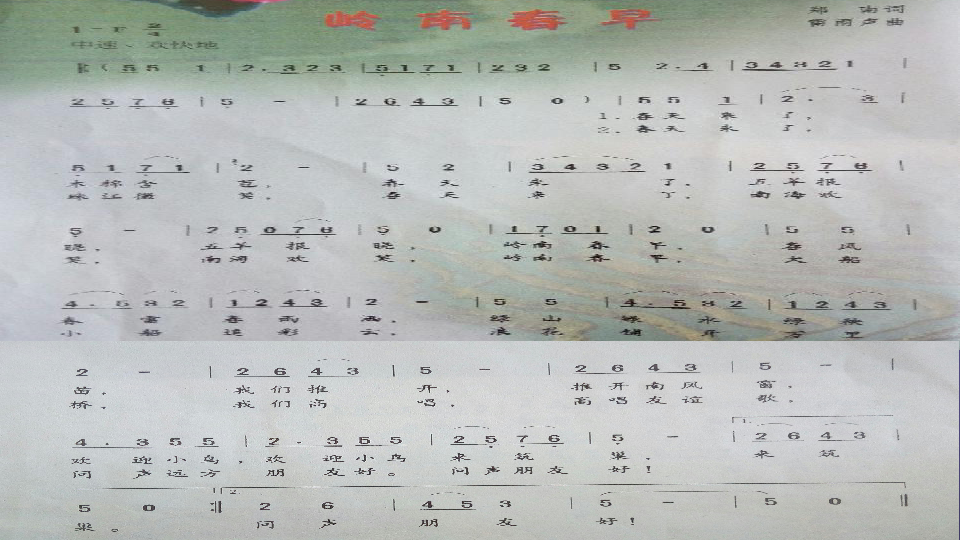 岭南春早
郑南词
雷雨声曲
1=F 2/4
中速、欢快地
( 5 5 1 | 2 . 3 2 3 | 5 1 7 1 | 2 3 2 | 5 2 . 4 | 3 4 3 2 1 |
2 5 7 6 | 5 - | 2 6 4 3 | 5 0 ) | 5 5 1 | 2 . 3 |
1. 春天来了，
2. 春天来了，
5 1 7 1 | 2 - | 5 2 | 3 4 3 2 1 | 2 5 7 6 |
木棉含苞， 春天来了， 五羊报
珠江微笑， 春天来了， 南海欢
5 - | 2 5 0 7 6 | 5 0 | 1 7 0 1 | 2 0 | 5 5 |
晓， 五羊报晓， 岭南春早， 春风
笑， 南海欢笑， 岭南春早， 大船
4 . 5 3 2 | 1 2 4 3 | 2 - | 5 5 | 4 . 5 3 2 | 1 2 4 3 |
春雷春雨洒， 绿山绿水绿秧
小船追彩云， 浪花铺开万里
2 - | 2 6 4 3 | 5 - | 2 6 4 3 | 5 - |
苗， 我们推开， 推开南风窗，
桥， 我们高唱， 高唱友谊歌，
4 . 3 5 5 | 2 . 3 5 5 | 2 5 7 6 | 5 - | 1. 2 6 4 3 |
欢迎小鸟，欢迎小鸟来筑巢， 来筑
问声远方朋友好。问声朋友好！
5 0 :‖ 2. 2 6 | 4 5 3 | 5 - | 5 0 ‖
巢。 问声朋友好！